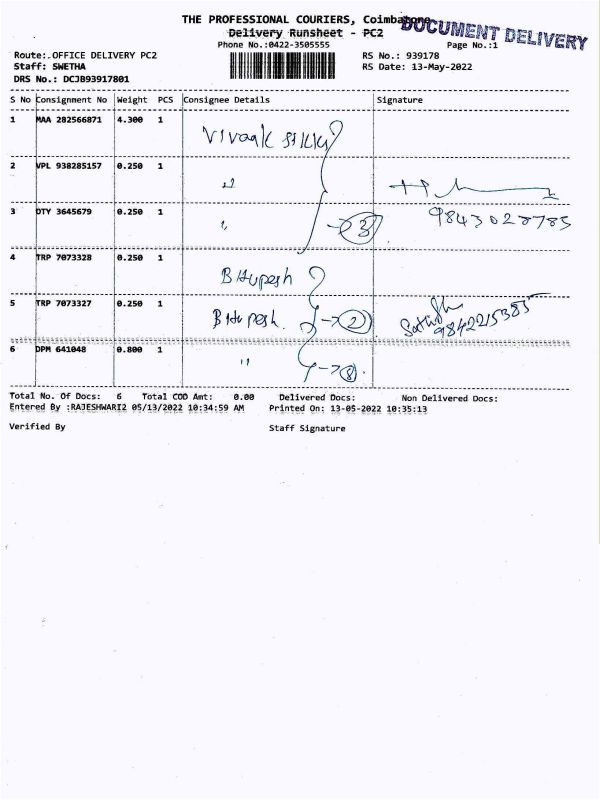 THE PROFESSIONAL COURIERS, Coimbatore
DOCUMENT DELIVERY
Delivery Runsheet - PC2
Phone No.:0422-3505555
Page No.:1
Route:.OFFICE DELIVERY PC2
RS No.: 939178
Staff: SWETHA
RS Date: 13-May-2022
DRS No.: DCJB93917801
S No Consignment No Weight PCS Consignee Details Signature
1 MAA 282566871 4.300 1
2 VPL 938285157 0.250 1 "
3 DTY 3645679 0.250 1 " → 3 9843028785
4 TRP 7073328 0.250 1 BHupesh
5 TRP 7073327 0.250 1 BHupesh. → 2 9842215385
6 DPM 641048 0.800 1 "
Total No. Of Docs: 6 Total COD Amt: 0.00 Delivered Docs: Non Delivered Docs:
Entered By :RAJESHWARI2 05/13/2022 10:34:59 AM Printed On: 13-05-2022 10:35:13
Verified By Staff Signature